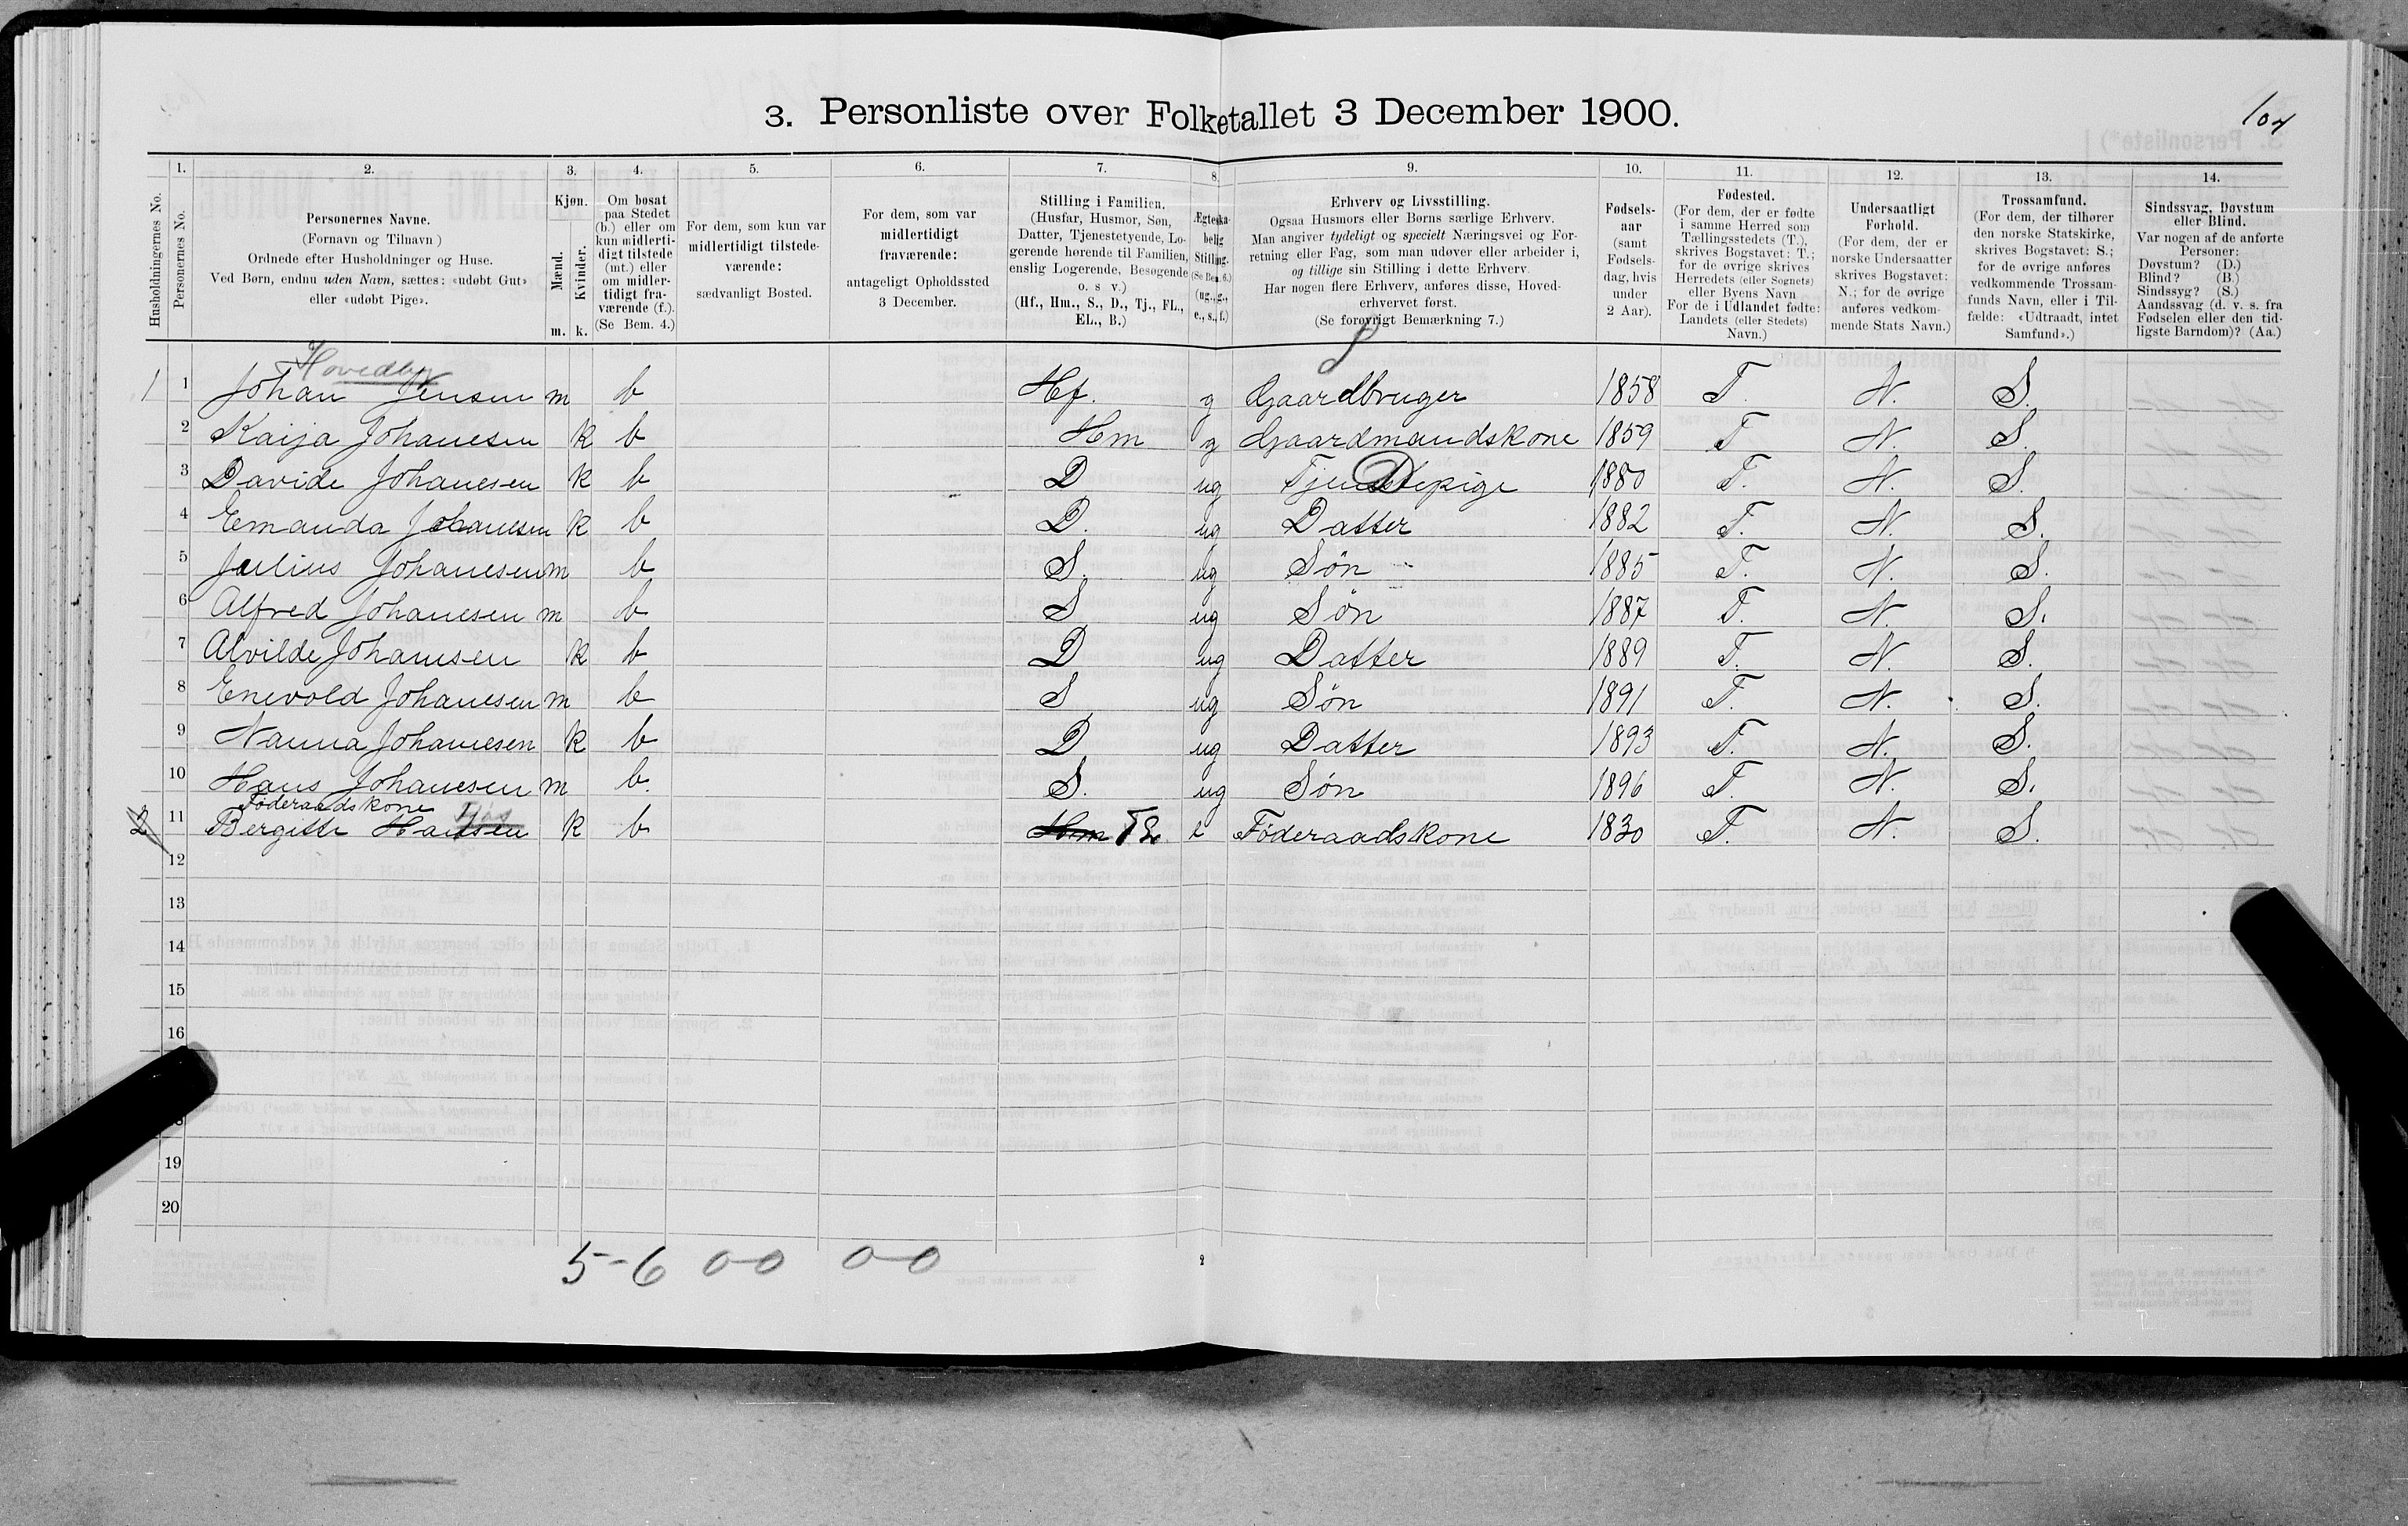 104
3. Personliste over Folketallet 3 December 1900.
Husholdningernes No.
1.
Personernes No.
2.
Personernes Navne.
(Fornavn og Tilnavn)
Ordnede efter Husholdninger og Huse.
Ved Børn, endnu uden Navn, sættes: «udøbt Gut»
eller «udøbt Pige».
3.
Kjøn.
Mænd.
Kvinder.
m. k.
4.
Om bosat
paa Stedet
(b.) eller om
kun midlerti-
digt tilstede
(mt.) eller
om midler-
tidigt fra-
værende (f.).
(Se Bem. 4.)
5.
For dem, som kun var
midlertidigt tilstede-
værende:
sædvanligt Bosted.
6.
For dem, som var
midlertidigt
fraværende:
antageligt Opholdssted
3 December.
7.
Stilling i Familien.
(Husfar, Husmor, Søn,
Datter, Tjenestetyende, Lo-
gerende hørende til Familien,
enslig Logerende, Besøgende
o. s v.)
(Hf., Hm., S., D., Tj., FL.,
EL., B.)
8.
Ægteska-
belig
Stilling.
(Se Bem. 6.)
(ug., g.,
e., s., f.)
9.
Erhverv og Livsstilling.
Ogsaa Husmors eller Børns særlige Erhverv.
Man angiver tydeligt og specielt Næringsvei og For-
retning eller Fag, som man udøver eller arbeider i,
og tillige sin Stilling i dette Erhverv.
Har nogen flere Erhverv, anføres disse, Hoved-
erhvervet først.
(Se forøvrigt Bemærkning 7.)
10.
Fødsels-
aar
(samt
Fødsels-
dag, hvis
under
2 Aar).
11.
Fødested.
(For dem, der er fødte
i samme Herred som
Tællingsstedets (T.),
skrives Bogstavet: T.;
for de øvrige skrives
Herredets (eller Sognets)
eller Byens Navn
For de i Udlandet fødte:
Landets (eller Stedets)
Navn.)
12.
Undersaatligt
Forhold.
(For dem, der er
norske Undersaatter
skrives Bogstavet:
N.; for de øvrige
anføres vedkom-
mende Stats Navn.)
13.
Trossamfund.
(For dem, der tilhører
den norske Statskirke,
skrives Bogstavet: S.;
for de øvrige anføres
vedkommende Trossam-
funds Navn, eller i Til-
fælde: «Udtraadt, intet
Samfund».)
14.
Sindssvag, Døvstum
eller Blind.
Var nogen af de anførte
Personer:
Døvstum? (D.)
Blind? (B.)
Sindssyg? (S.)
Aandssvag (d. v. s. fra
Fødselen eller den tid-
ligste Barndom)? (Aa.)
Hovedby
1 1 Johan Jensen m b Hf. g Gaardbruger 1858 T. N. S.
2 Kaija Johanesen k b Hm g Gaardmandskone 1859 T N. S.
3 Davide Johanesen k b D ug Tjenstepige D 1880 T. N. S.
4 Emanda Johanesen k b D. ug Datter 1882 T. N. S.
5 Julius Johanesen m b S. ug Søn 1885 T. N. S.
6 Alfred Johanesen m b S ug Søn 1887 T. N. S.
7 Alvilde Johansen k b D ug Datter 1889 T. N. S.
8 Enevold Johanesen m b S ug Søn 1891 T. N. S.
9 Nanna Johanesen k b D ug Datter 1893 T. N. S.
10 Hans Johanesen m b. S. ug Søn 1896 T. N. S.
Føderaadskone
2 11 Bergitte Hansen k b Hm e Føderaadskone 1830 T. N. S.
12
13
14
15
16
19
20
5-6 0-0 0-0
2